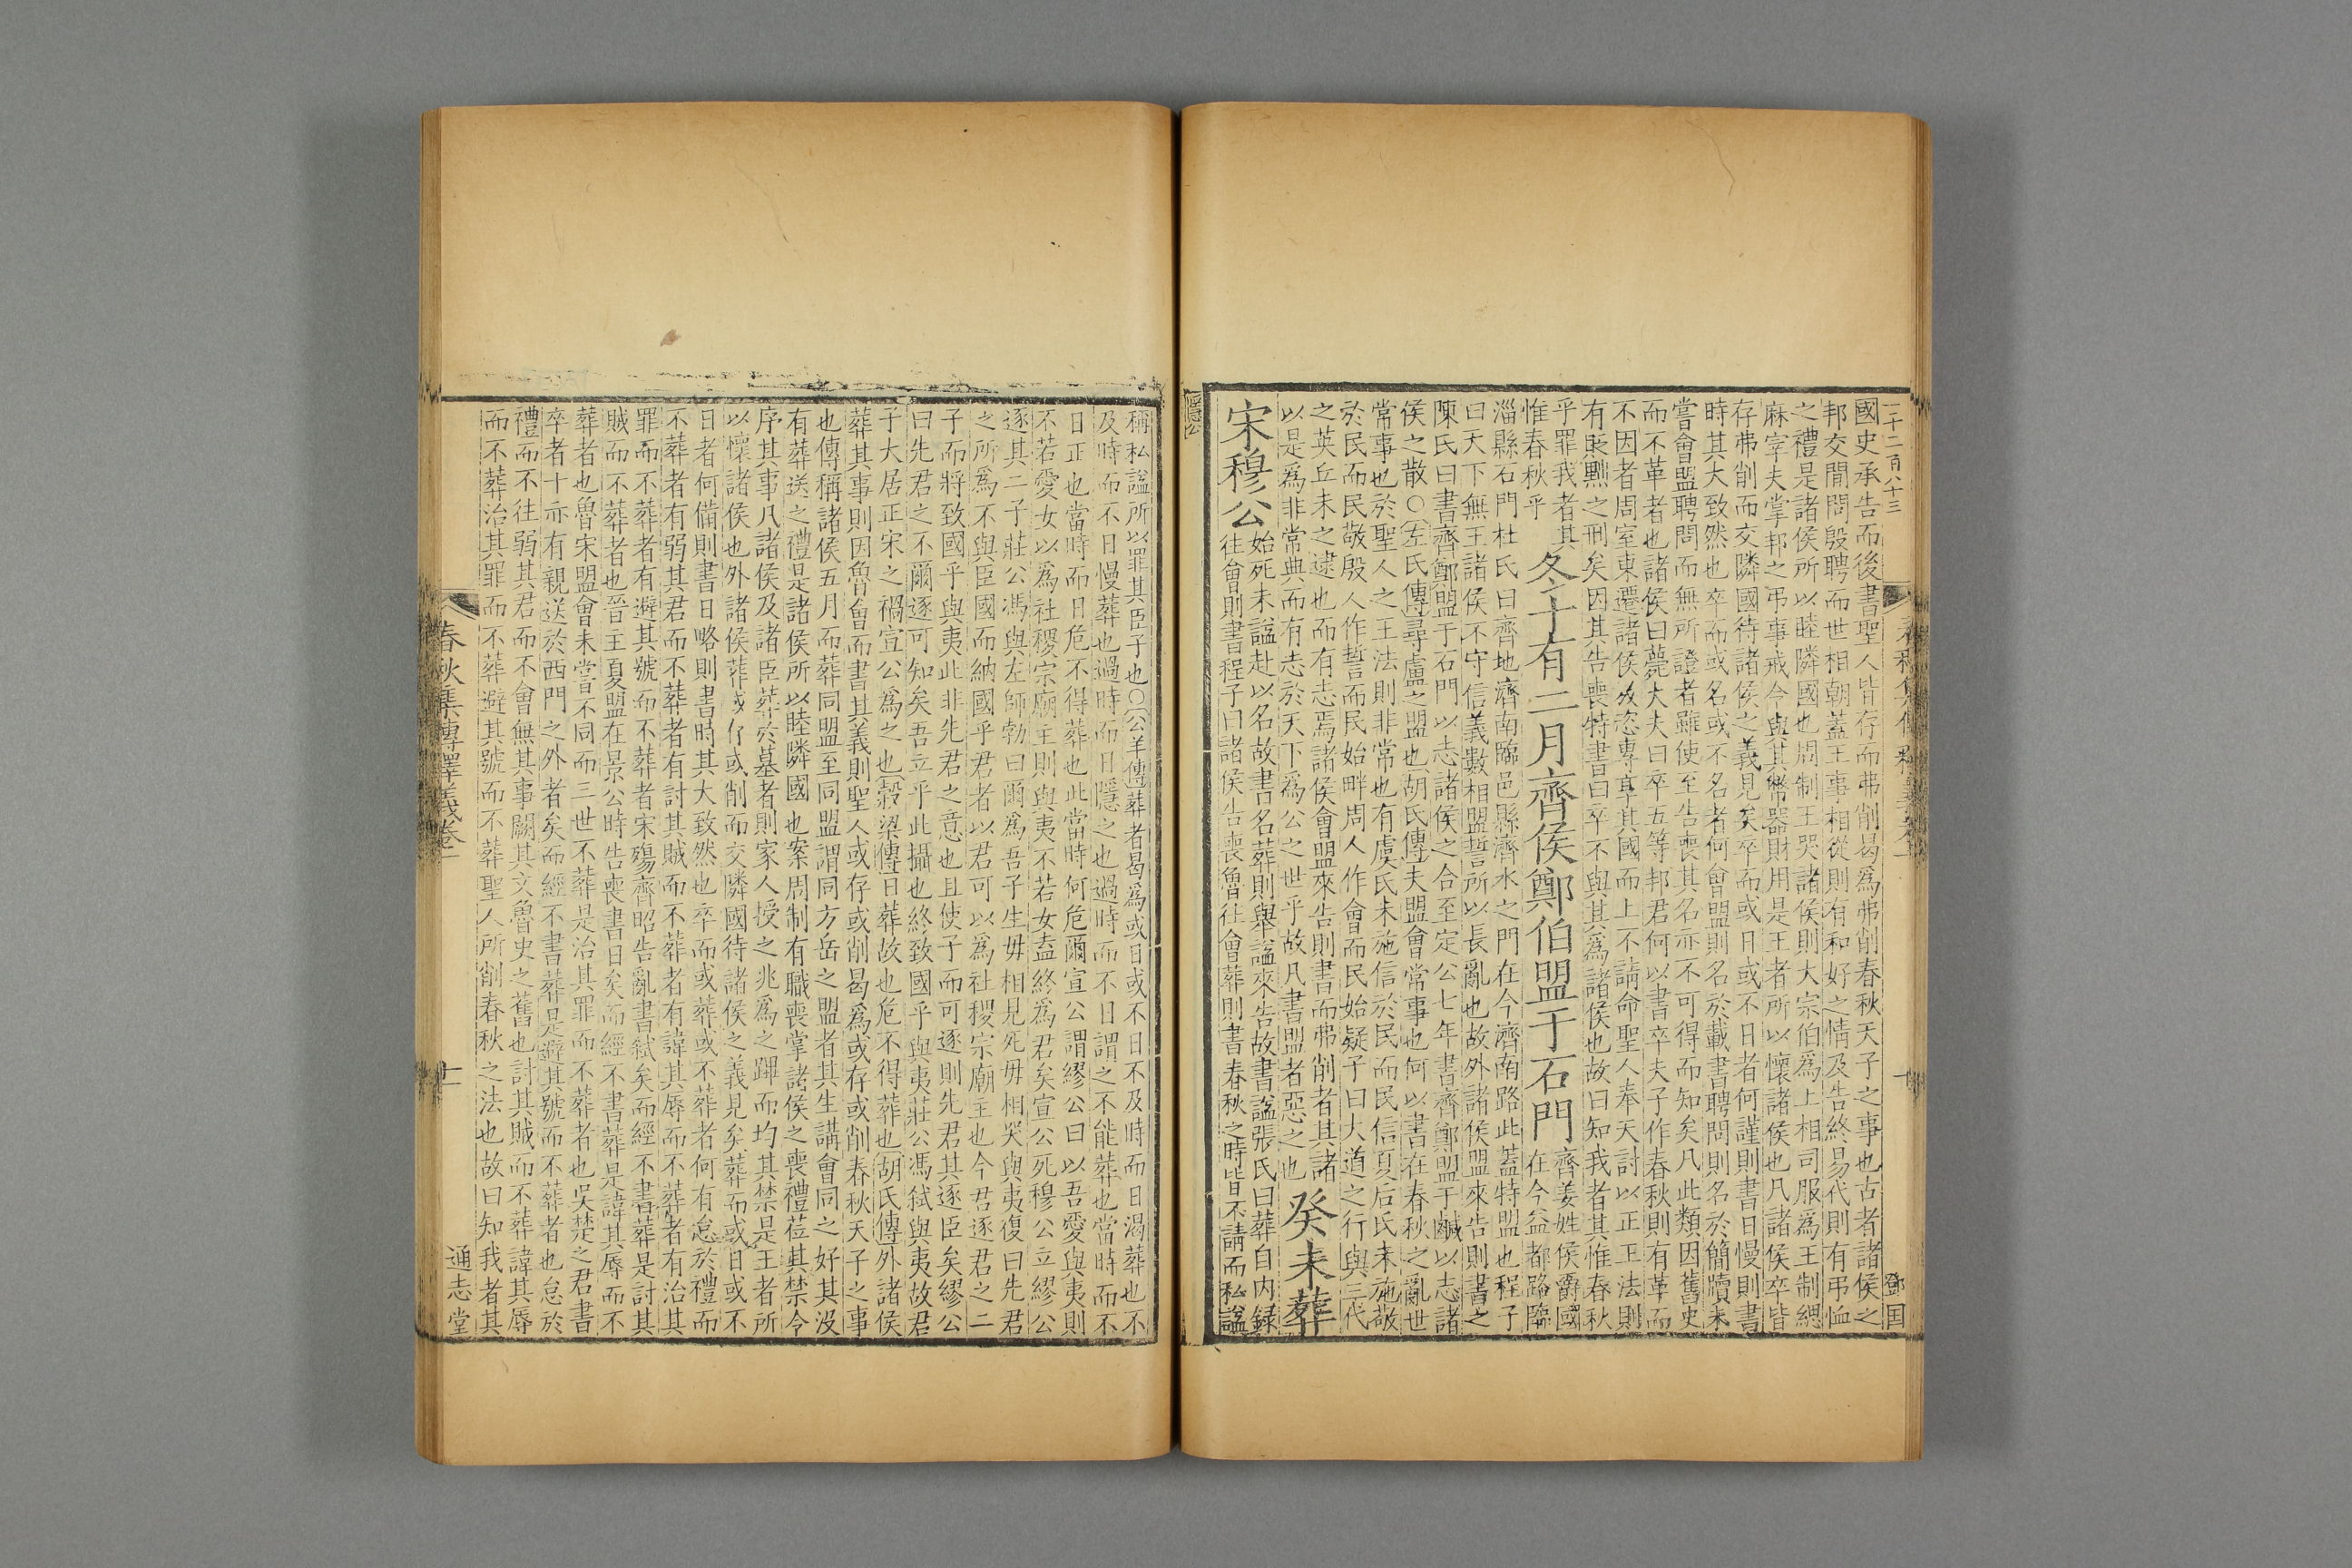 一千二百八十三
鄧国
國史承告而後書聖人皆存而弗削曷爲弗削春秋天子之事也古者諸侯之
邦交閒問殷聘而世相朝蓋王事相從則有和好之情及告終易代則有弔恤
之禮是諸侯所以睦隣國也周制王哭諸侯則大宗伯爲上相司服爲王制緦
麻宰夫掌邦之弔事戒令與其幣器財用是王者所以懷諸侯也凡諸侯卒皆
存弗削而交隣國待諸侯之義見矣卒而或日或不日者何謹則書日慢則書
時其大致然也卒而或名或不名者何會盟則名於載書聘問則名於簡牘未
嘗會盟聘問而無所證者雖使至告喪其名亦不可得而知矣凡此類因舊史
而不革者也諸侯曰薨大夫曰卒五等邦君何以書卒夫子作春秋則有革而
不因者周室東遷諸侯放恣專享其國而上不請命聖人奉天討以正王法則
有貶黜之刑矣因其告喪特書曰卒不與其爲諸侯也故曰知我者其惟春秋
乎罪我者其
惟春秋乎
冬十有二月齊侯鄭伯盟于石門
齊姜姓侯爵國
在今益都路臨
淄縣石門杜氏曰齊地濟南臨邑縣濟水之門在今濟南路此蓋特盟也程子
曰天下無王諸侯不守信義數相盟誓所以長亂也故外諸侯盟來告則書之
陳氏曰書齊鄭盟于石門以志諸侯之合至定公七年書齊鄭盟于鹹以志諸
侯之散○左氏傳尋盧之盟也胡氏傳夫盟會常事也何以書在春秋之亂世
常事也於聖人之王法則非常也有虞氏未施信於民而民信夏后氏未施敬
於民而民敬殷人作誓而民始畔周人作會而民始疑子曰大道之行與三代
之英丘未之逮也而有志焉諸侯會盟來告則書而弗削者其諸
以是爲非常典而有志於天下爲公之世乎故凡書盟者惡之也
癸未葬
宋穆公
始死未諡赴以名故書名葬則舉諡來告故書諡張氏曰葬自内録
往會則書程子曰諸侯告喪魯往會葬則書春秋之時皆不請而私諡
稱私諡所以罪其臣子也○公羊傳葬者曷爲或日或不日不及時而日渴葬也不
及時而不日慢葬也過時而日隱之也過時而不日謂之不能葬也當時而不
日正也當時而日危不得葬也此當時何危爾宣公謂繆公曰以吾愛與夷則
不若愛女以爲社稷宗廟主則與夷不若女盍終爲君矣宣公死穆公立繆公
逐其二子莊公馮與左師勃曰爾爲吾子生毋相見死毋相哭與夷復曰先君
之所爲不與臣國而納國乎君者以君可以爲社稷宗廟主也今君逐君之二
子而將致國乎與夷此非先君之意也且使子而可逐則先君其逐臣矣繆公
曰先君之不爾逐可知矣吾立乎此攝也終致國乎與夷莊公馮弑與夷故君
子大居正宋之禍宣公爲之也穀梁傳日葬故也危不得葬也胡氏傳外諸侯
葬其事則因魯會而書其義則聖人或存或削曷爲或存或削春秋天子之事
也傳稱諸侯五月而葬同盟至同盟謂同方岳之盟者其生講會同之好其没
有葬送之禮是諸侯所以睦隣國也案周制有職喪掌諸侯之喪禮莅其禁令
序其事凡諸侯及諸臣葬於墓者則冢人授之兆爲之蹕而均其禁是王者所
以懷諸侯也外諸侯葬或存或削而交隣國待諸侯之義見矣葬而或日或不
日者何備則書日略則書時其大致然也卒而或葬或不葬者何有怠於禮而
不葬者有弱其君而不葬者有討其賊而不葬者有諱其辱而不葬者有治其
罪而不葬者有避其號而不葬者宋殤齊昭告亂書弑矣而經不書葬是討其
賊而不葬者也晉主夏盟在景公時告喪書日矣而經不書葬是諱其辱而不
葬者也魯宋盟會未嘗不同而三世不葬是治其罪而不葬者也吳楚之君書
卒者十亦有親送於西門之外者矣而經不書葬是避其號而不葬者也怠於
禮而不往弱其君而不會無其事闕其文魯史之舊也討其賊而不葬諱其辱
而不葬治其罪而不葬避其號而不葬聖人所削春秋之法也故曰知我者其
春秋集傳釋義卷一
十一
通志堂